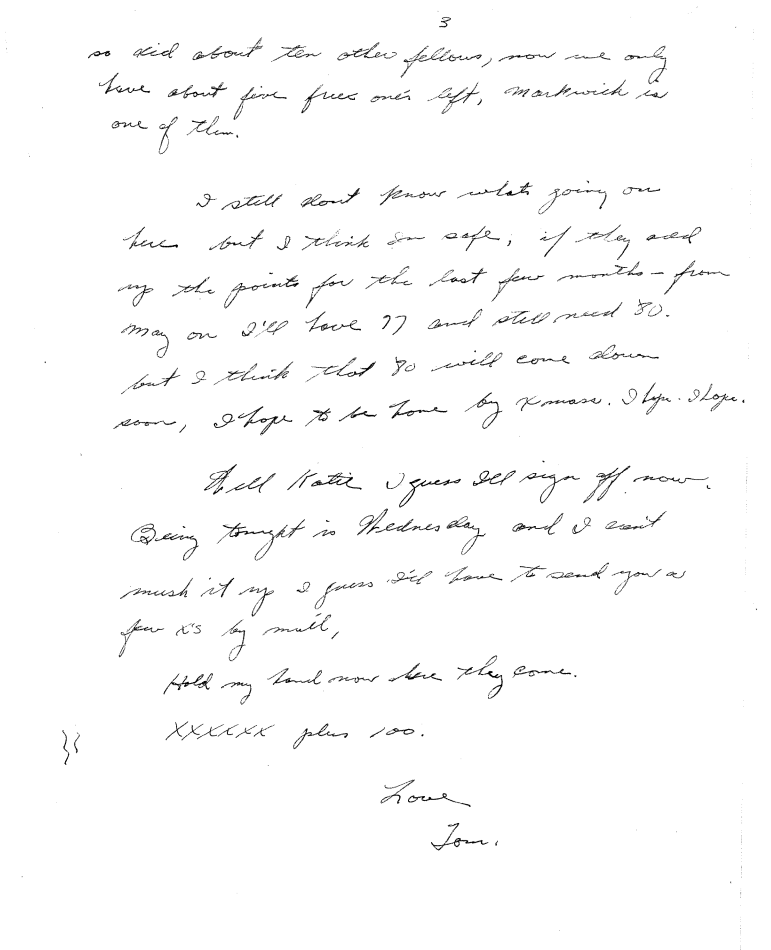 3
so did about ten other fellows, now we only
have about five free one's left, Markwich is
one of them.
I still dont know whats going on
here but I think Im safe, if they add
up the points for the last few months - from
May on I'll have 77 and still need 80.
but I think that 80 will come down
soon, I hope to be home by Xmass. I hope. I hope.
Well Katie I guess Ill sign off now.
Being tonight is Wednesday and I cant
mush it up I guess I'll have to send you a
few x's by mail,
Hold my hand now here they come.
XXXXXX plus 100.
Love
Tom.